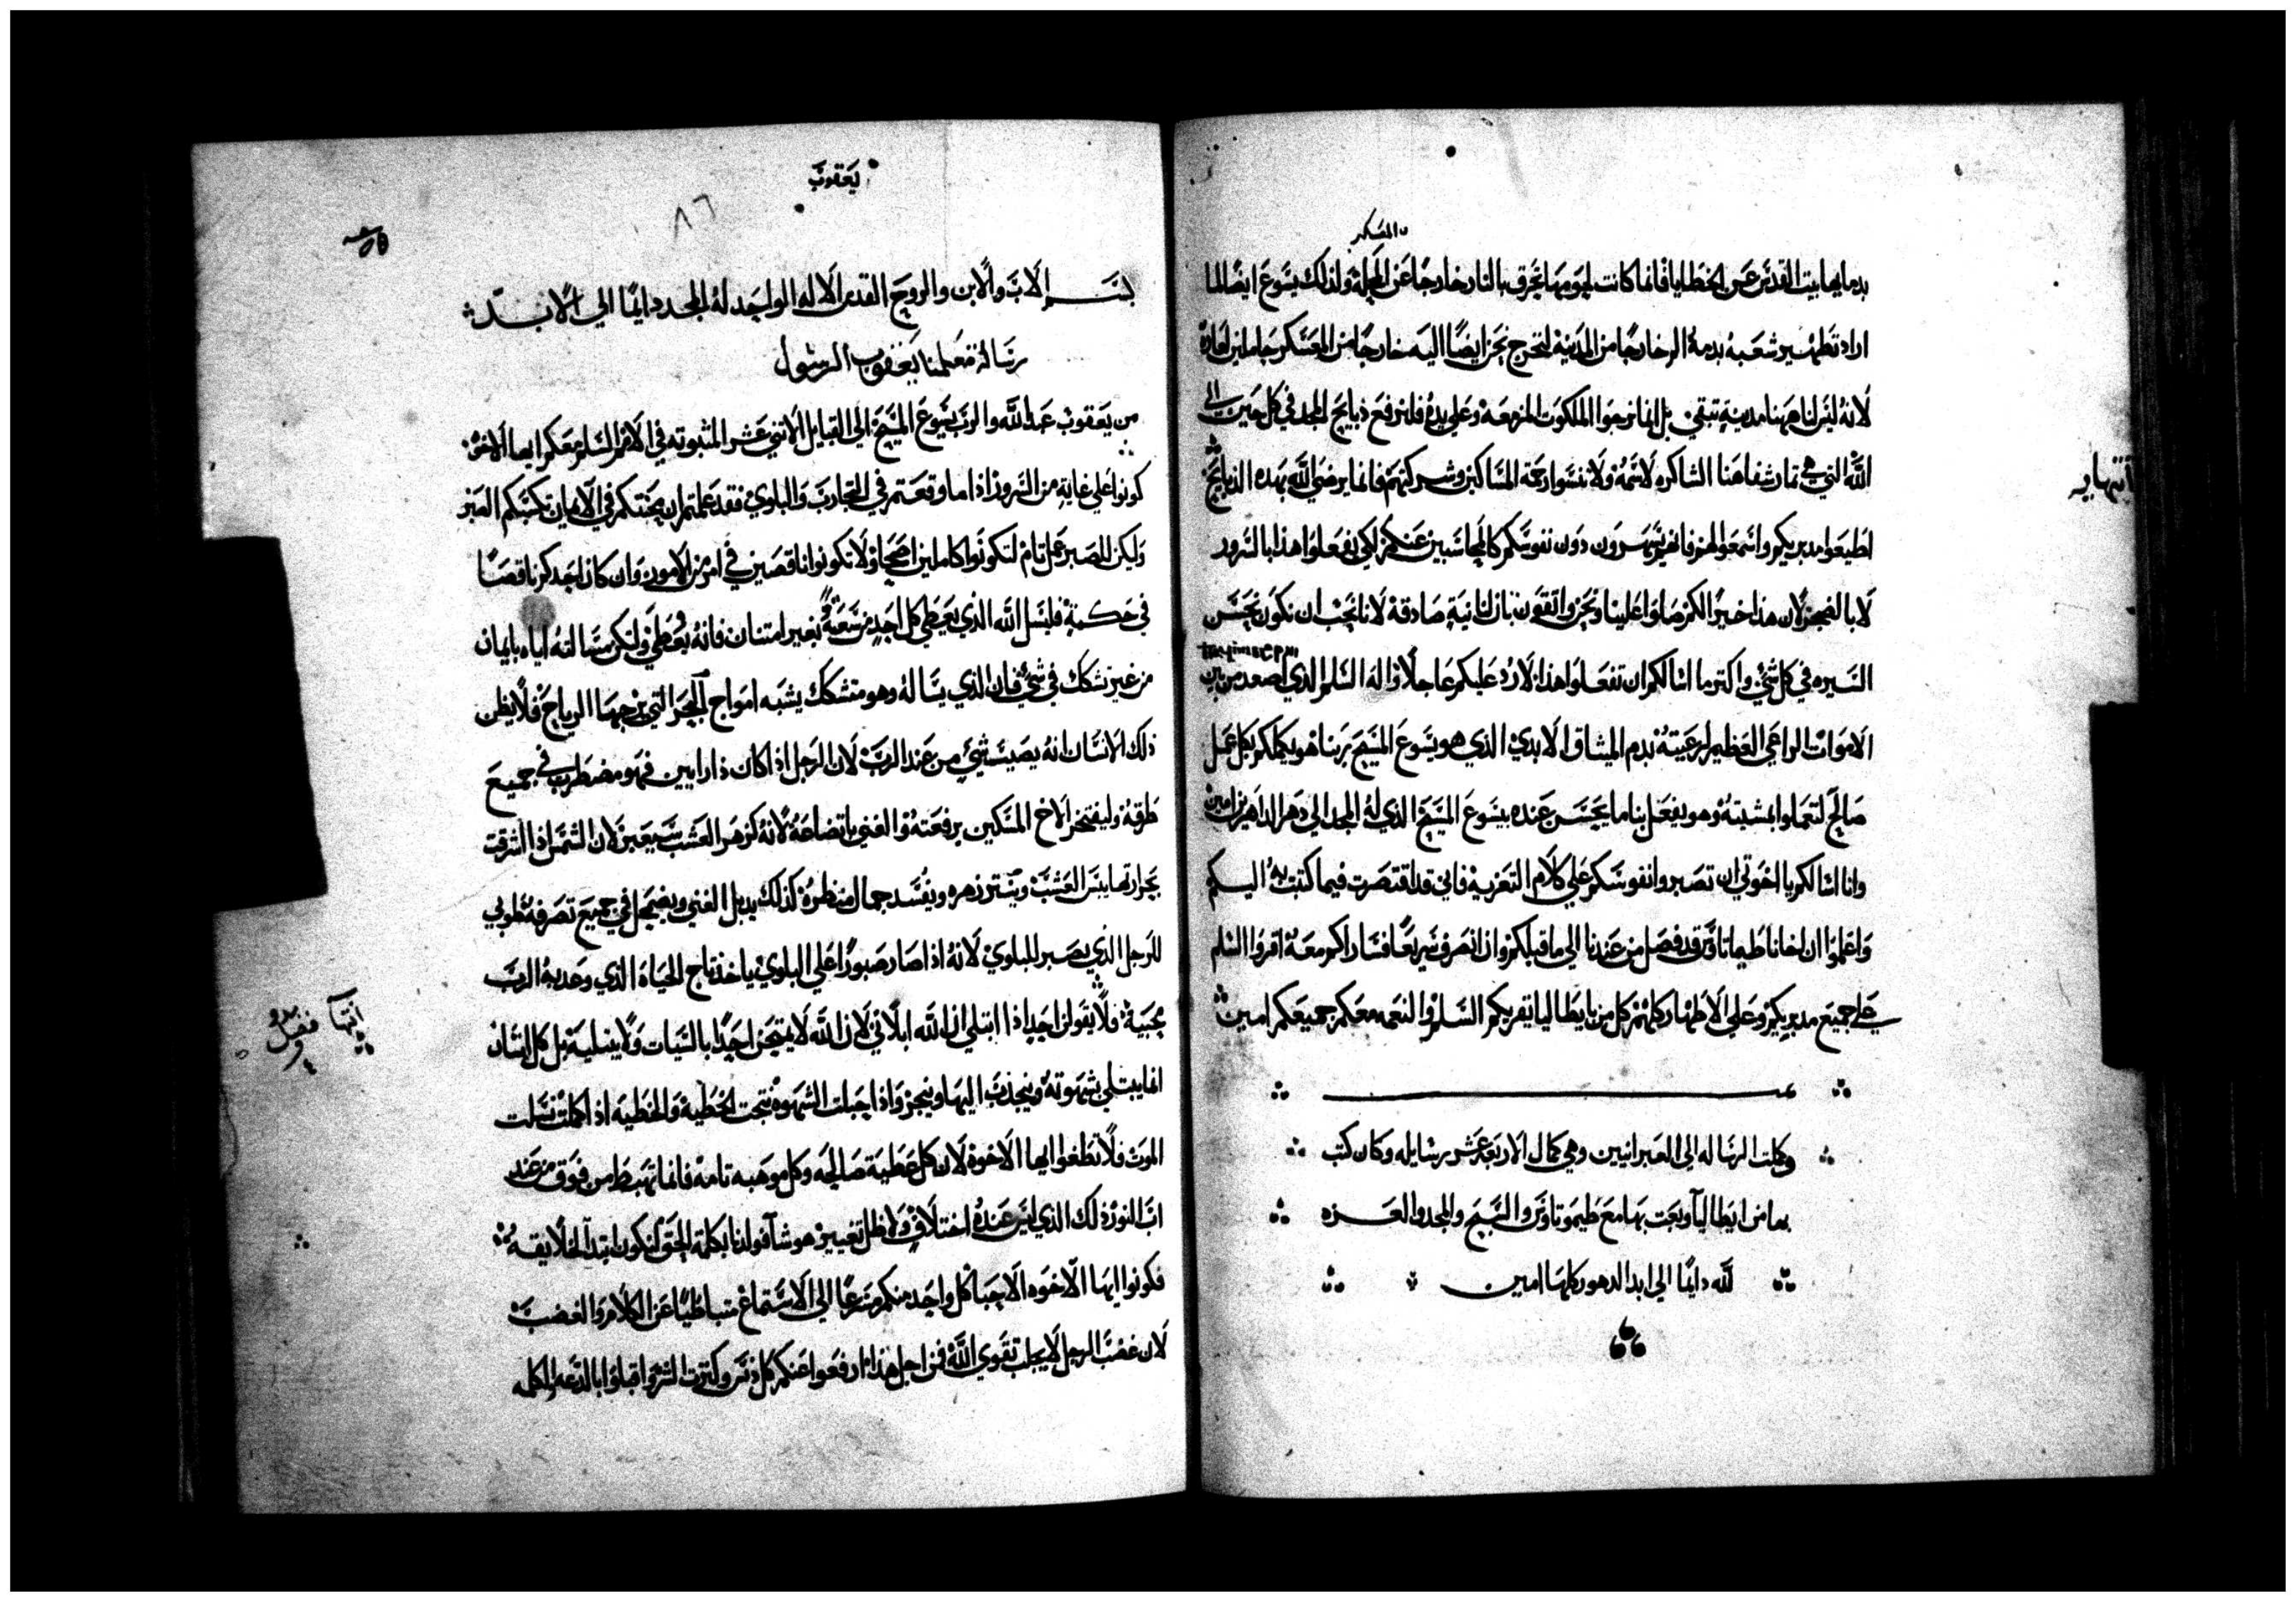 المعسكر
بدمايها بيت القدس عن الخطايا فانما كانت لحومها تحرق بالنار خارجًا عن المحلة ولذلك يسوع ايضًا لما
اراد تطهير شعبه بدمه الر خارجًا من المدينة لنخرج نحن ايضًا اليه خارجًا من المعسكر حاملين لعاره
لانه ليس لنا هاهنا مدينة تبقي بل انما نرجوا الملكوت المزمعة وعلي يده فلنرفع ذبايح المجد في كل حين الي
الله التي هي ثمار شفاهنا الشاكره لاسمه ولا تنسوا رحمة المساكين وشركتهم فانما يرضي الله بهذه الذبايح
انتها
اطيعوا مدبريكم واسمعوا لهم فانهم يسهرون دون نفوسكم كالمحاسبين عنكم لكي يفعلوا هذا بالسرور
لا بالضجر لان هذا خير لكم صلوا علينا ونحن واثقون بان لنا نية صادقة لانا نحب ان نكون بحسن
السيره في كل شي واكثر ما اسالكم ان تفعلوا هذا لارد عليكم عاجلًا واله السلم الذي اصعد من بين
الاموات الراعي العظيم لرعيته بدم الميثاق الابدي الذي هو يسوع المسيح ربنا هو يكملكم بكل عمل
صالح لتعملوا بمشيته وهو يفعل بنا ما يحسن عنده بيسوع المسيح الذي له المجد الي دهر الداهرين امين
وانا اسالكم يا اخوتي ان تصبروا نفوسكم علي كلام التعزيه فاني قد اقتصرت فيما كتبت به اليكم
واعلموا ان اخانا طيماتاوس قد فصل من عندنا الي ما قبلكم وان انصرف سريعًا فساراكم معه اقروا السلم
علي جميع مدبريكم وعلي الاطهار كلهم كل من بايطاليا يقريكم السلم والنعمه معكم جميعكم امين
وكملت الرساله الي العبرانيين وهي كمال الاربعة عشر رسايله وكان كتب
بها من ايطاليا وبعث بها مع طيموتاوس والسبح والمجد والعزه
لله دايمًا الي ابد الدهور كلها امين
يعقوب
٨٦
بسم الاب والابن والروح القدس الاله الواحد له المجد دايمًا الي الابد
رسالة معلمنا يعقوب الرسول
من يعقوب عبد الله والرب يسوع المسيح الي القبايل الاثني عشر المثبوته في الامم السلم معكم ايها الاخوه
كونوا علي غاية من السرور اذا ما وقعتم في التجارب والبلاوي فقد علمتم ان محنتكم في الايمان تكسبكم الصبر
وليكن للصبر عمل تام لتكونوا كاملين اصحا ولا تكونوا ناقصين في امر من الامور وان كان احدكم ناقصًا
في حكمة فليسل الله الذي يعطي كل احد من سعة بغير امتنان فانه يعطي ولتكن مسالته اياه بايمان
من غير تشكك في شي فان الذي يساله وهو متشكك يشبه امواج البحر التي تزجها الرياح فلا يظن
ذلك الانسان انه يصيب شي من عند الرب لان الرجل اذا كان ذا رايين فهو مضطرب في جميع
طرقه وليفتخر الاخ المسكين برفعته والغني باتضاعه لانه كزهر العشب سيعبر لان الشمس اذا اشرقت
بحرارتها يبس العشب وينتثر زهره ويفسد جمال منظره كذلك يذبل الغني ويضمحل في جميع تصرفه طوبي
للرجل الذي يصبر للبلاوي لانه اذا صار صبورًا علي البلوي ياخذ تاج الحياه الذي وعد به الرب
محبيه فلا يقولن احد اذا ابتلي ان الله ابلاني لان الله لا يمتحن احدًا بالسيات ولا يبتليه بل كل انسان
انتها فصل
انما يبتلي بشهوته وينجذب اليها وينجر واذا حبلت الشهوة نتجت الخطية والخطية اذا كملت نسلت
الموت فلا تطغوا ايها الاخوة لان كل عطية صالحه وكل موهبه تامة فانما تهبط من فوق من عند
اب النور ذلك الذي ليس عنده اختلاف ولا ظل تغيير هو شا فولدنا بكلمة الحق لنكون ابتدا لخلايقه
فكونوا ايها الاخوه الاحبا كل واحد منكم مسرعًا الي الاستماع متباطيًا عن الكلام والغضب
لان غضب الرجل لا يجلب تقوي الله فمن اجل هذا ارفعوا عنكم كل دنس وكثرت الشر واقبلوا بالدعه الكلمه